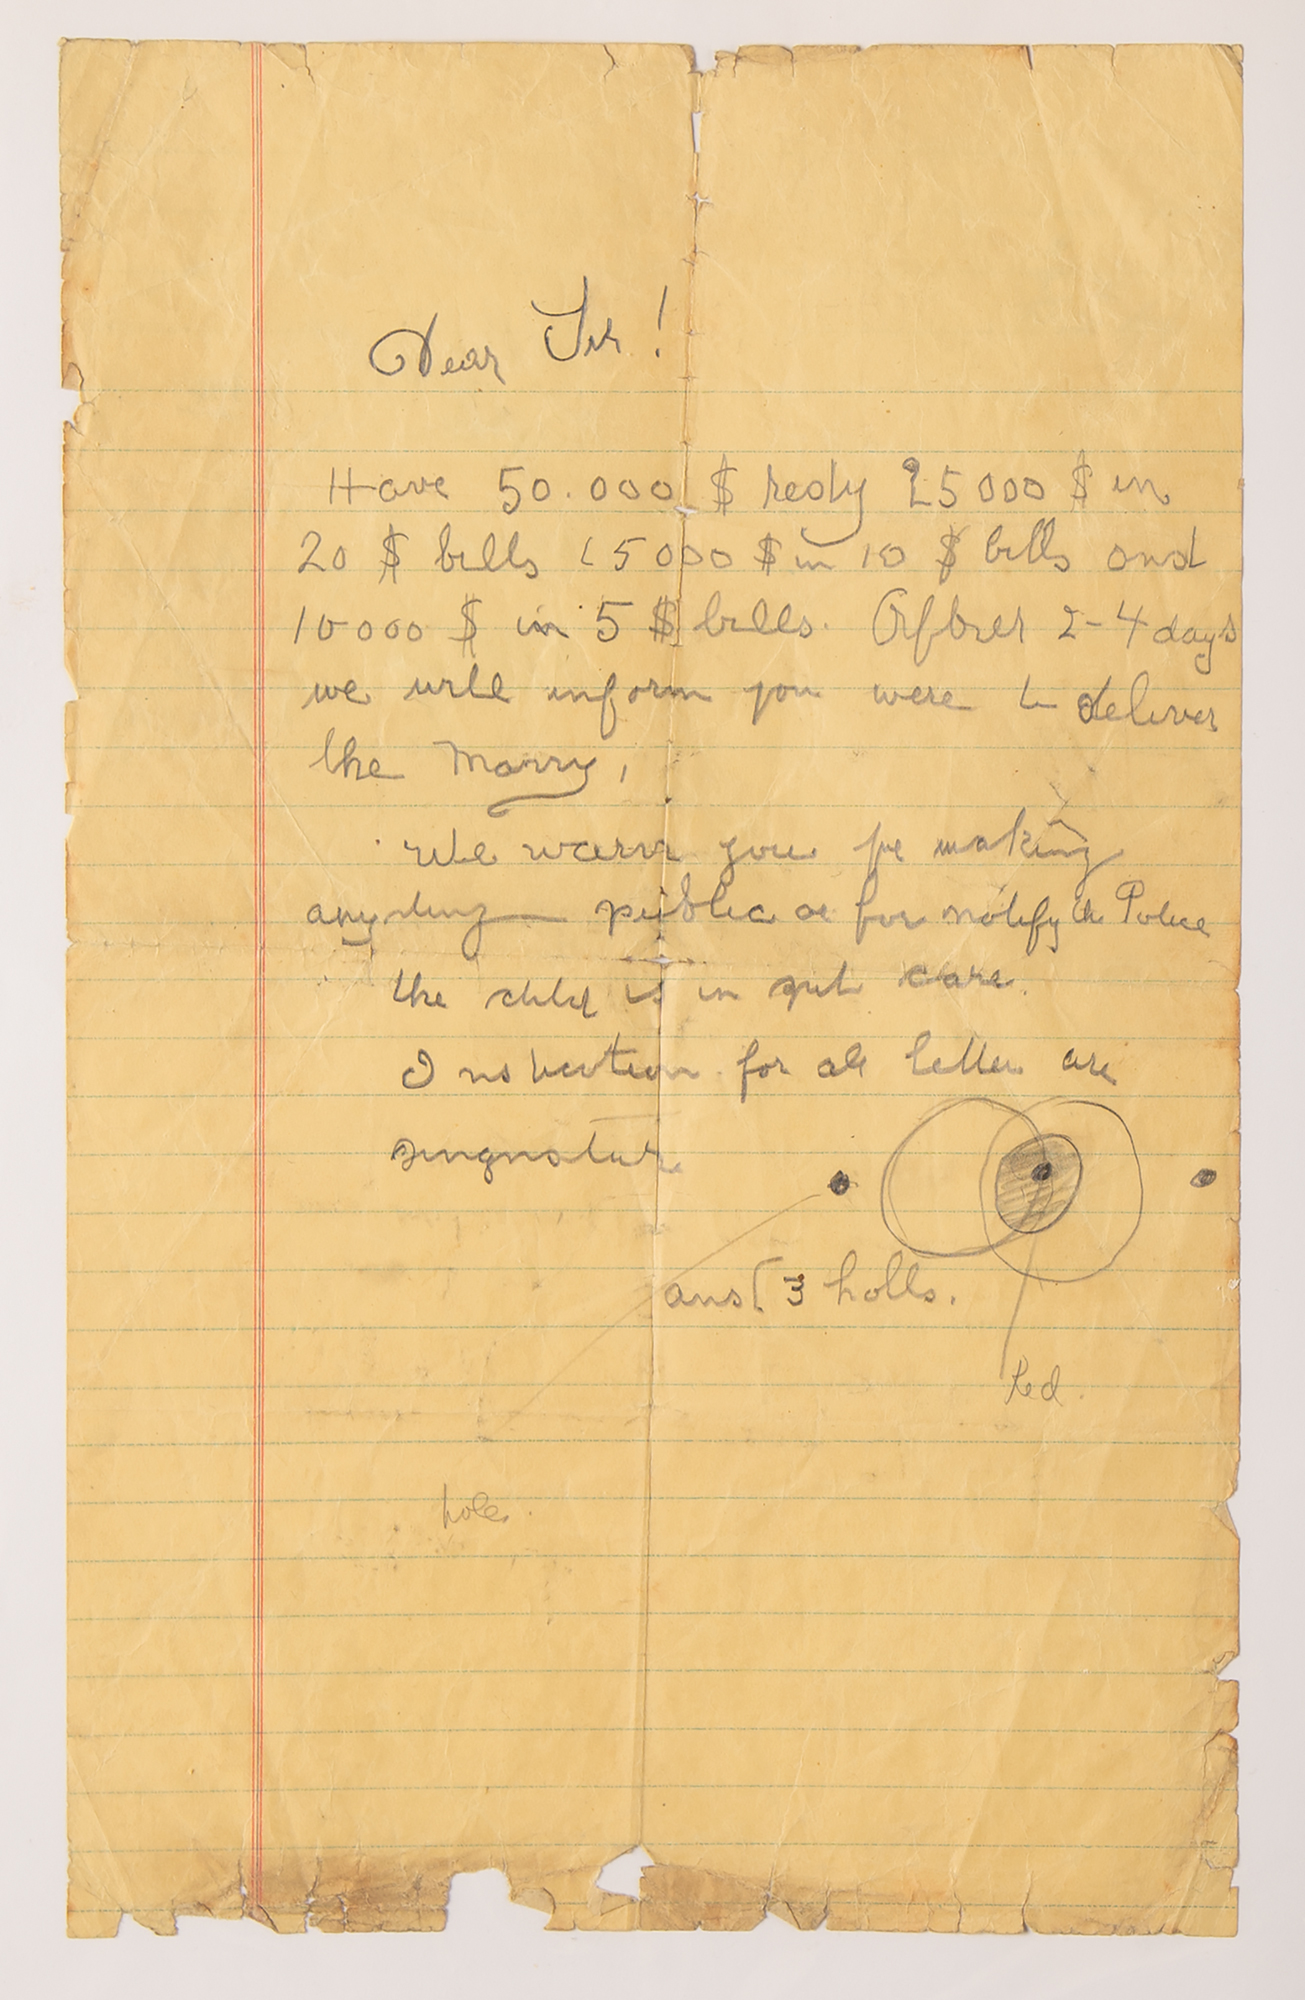 Dear Sir!
Have 50.000 $ redy 25000 $ in
20 $ bills 15000 $ in 10 $ bills and
10000 $ in 5 $ bills. After 2-4 days
we will inform you were to deliver
the Mony,
We warn you for making
anyding public or for notify the Police
the child is in gut care.
Instruction for all letter are
singnature
and 3 holls.
Red
hole